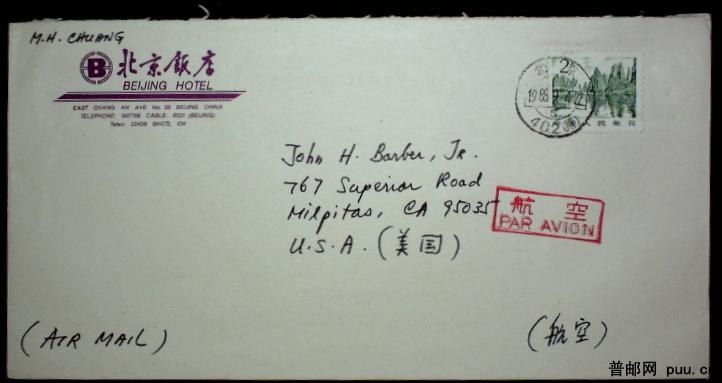 M.H. CHUANG
北京飯店
BEIJING HOTEL
EAST CHANG AN AVE No. 33 BEIJING CHINA
TELEPHONE: 507766 CABLE: 6531 (BEIJING)
Telex: 22426 BHCTL CN
John H. Barber, Jr.
767 Superior Road
Milpitas, CA 95035
U.S.A. (美国)
航空
PAR AVION
(AIR MAIL)
(航空)
普邮网 puu.c